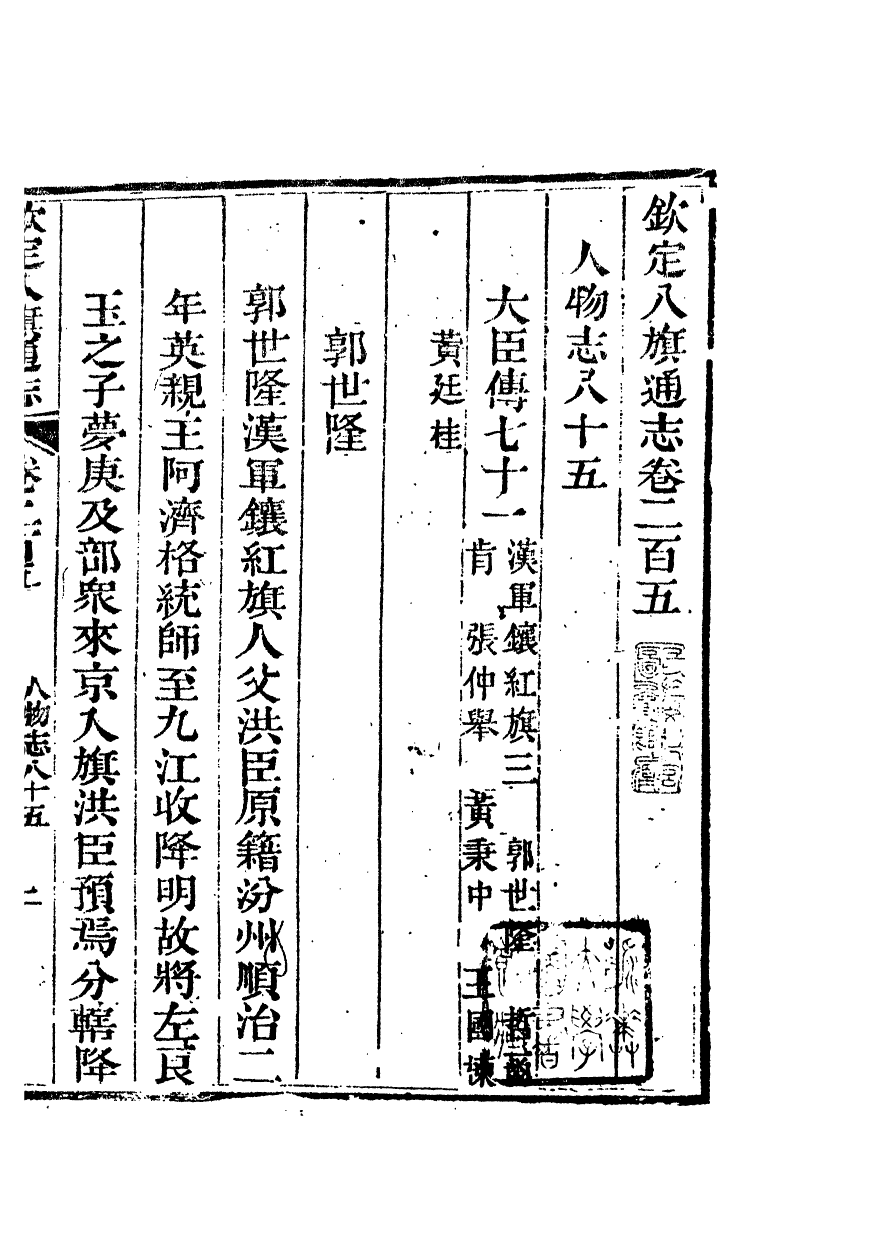 欽定八旗通志卷二百五
人物志八十五
大臣傳七十一
漢軍鑲紅旗三 郭世隆 哲
肯 張仲舉 黃秉中 王國棟
黃廷桂
郭世隆
郭世隆漢軍鑲紅旗人父洪臣原籍汾州順治二
年英親王阿濟格統師至九江收降明故將左良
玉之子夢庚及部衆來京入旗洪臣預焉分轄降
欽定八旗通志 卷二百五 人物志八十五